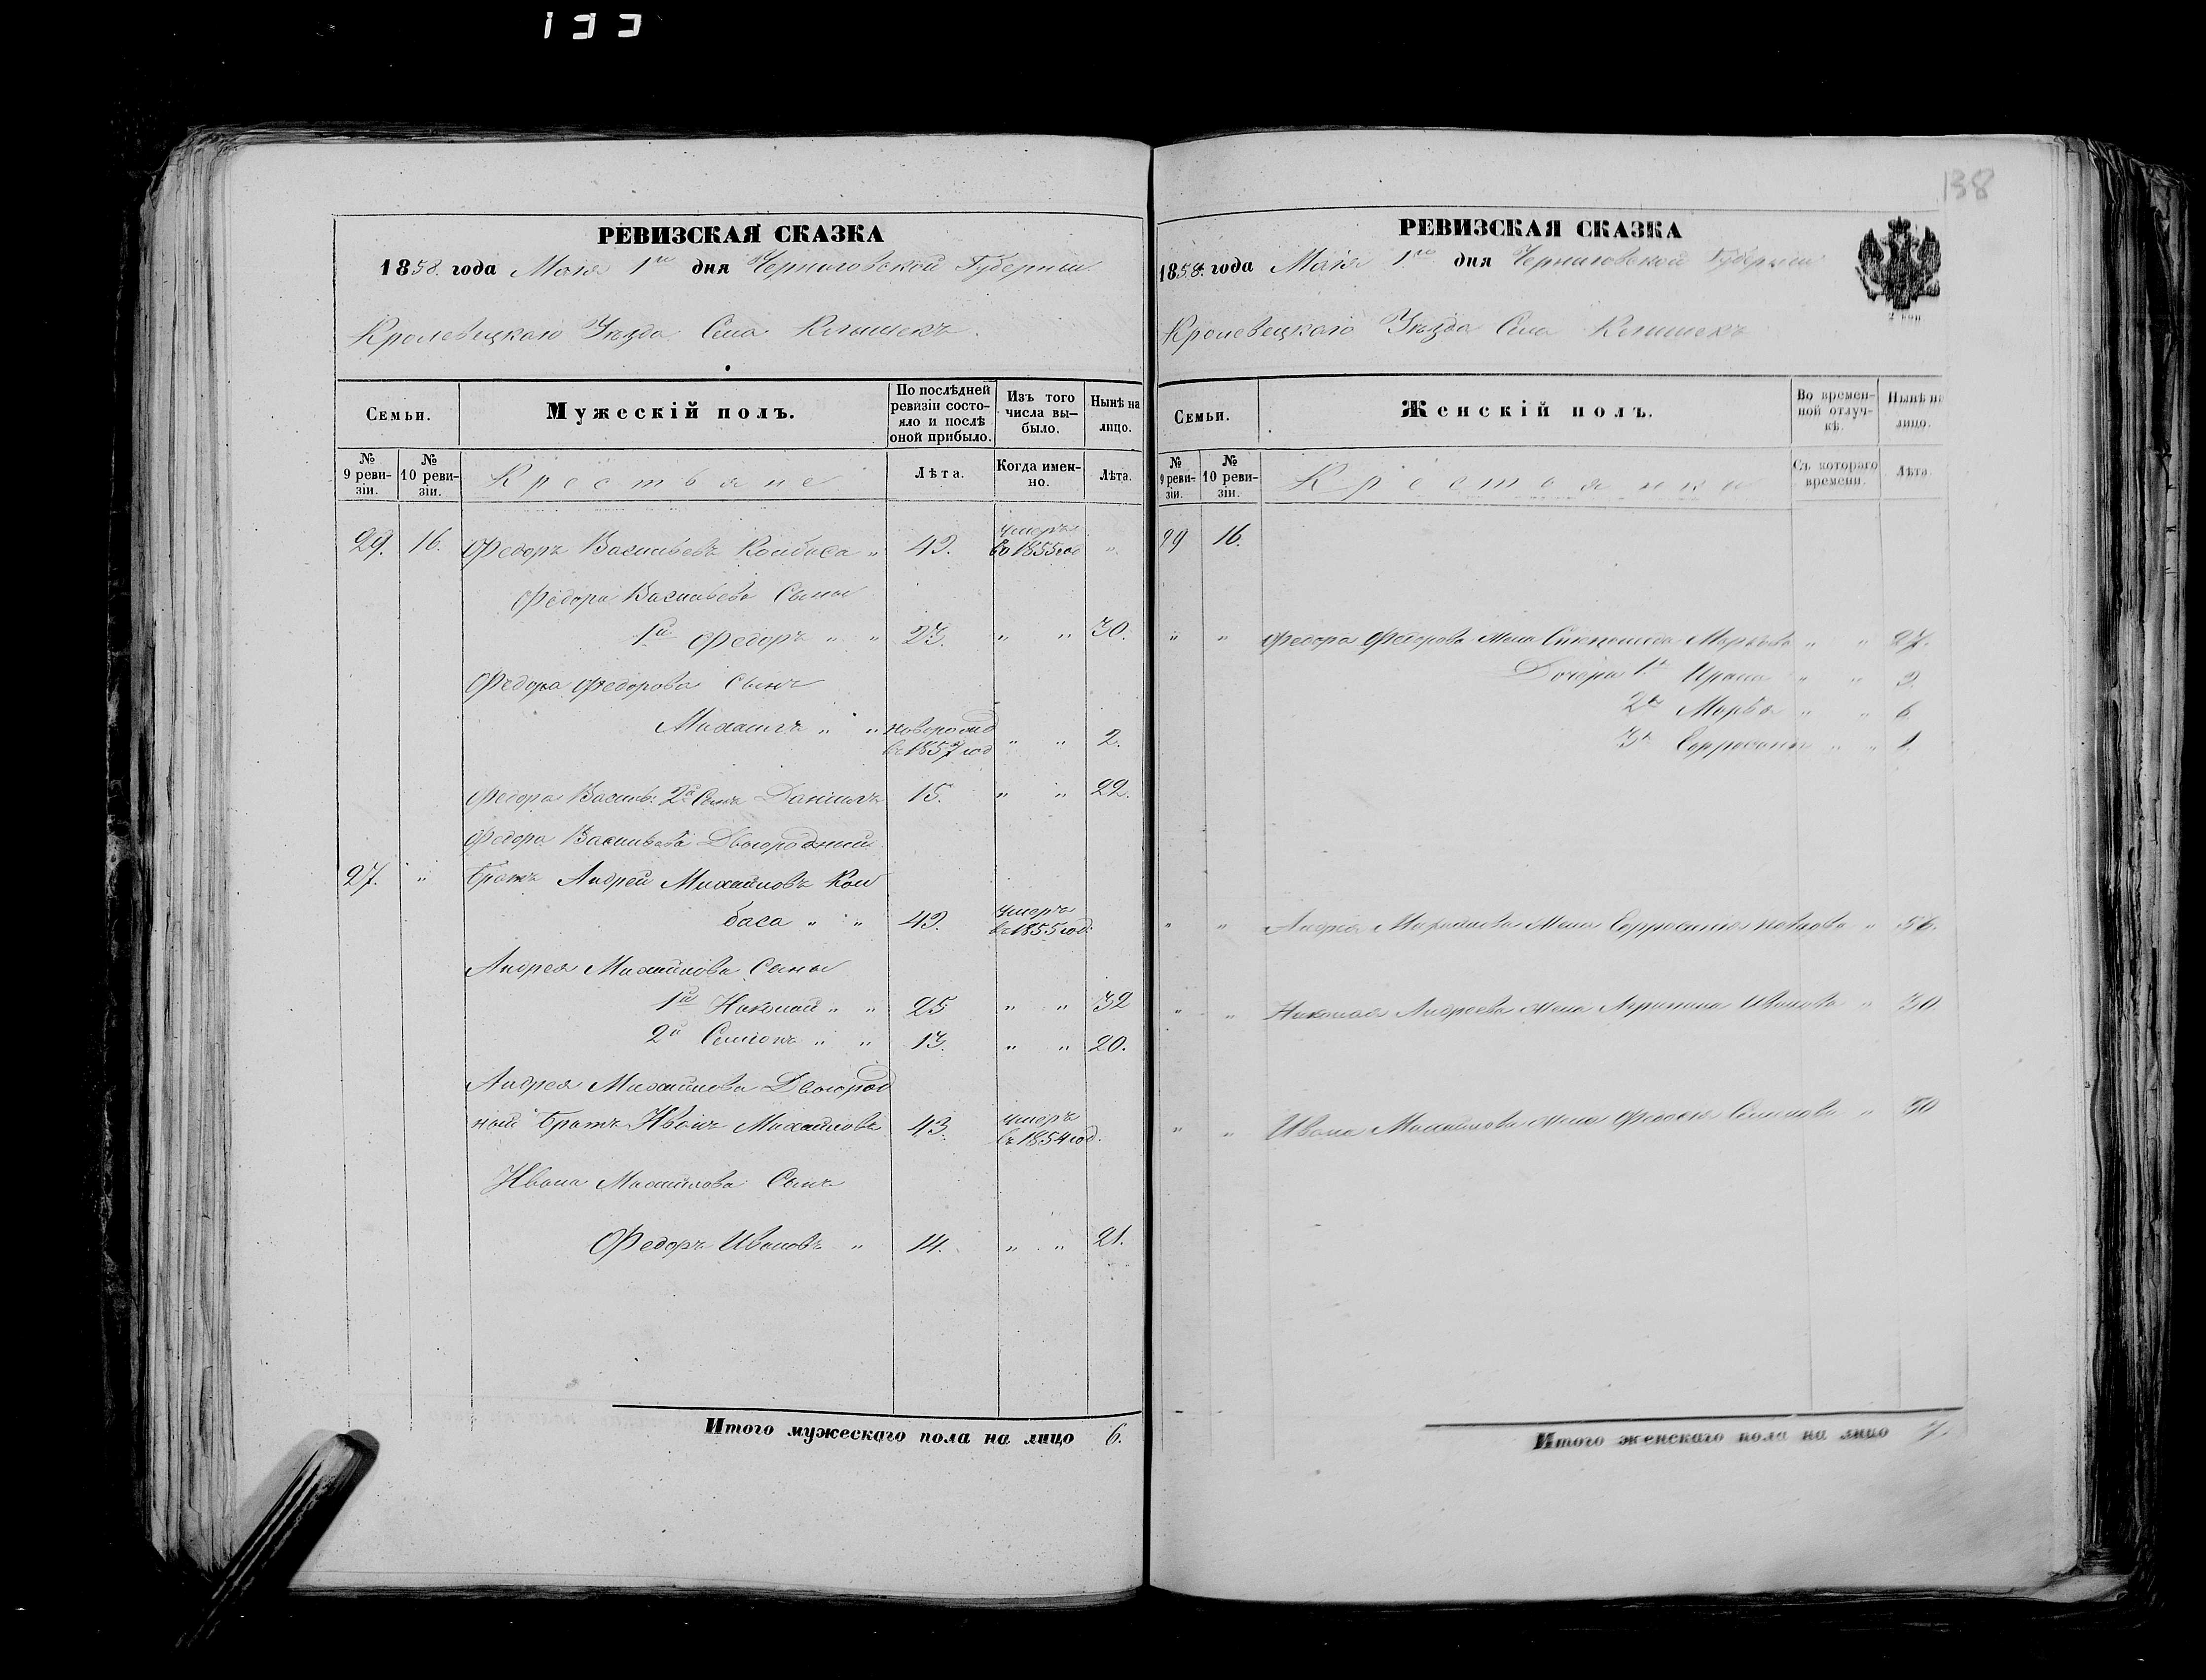 138
РЕВИЗСКАЯ СКАЗКА
1858. года Мая 1го дня Черниговской Губернии
Кролевецкаго Уѣзда Села Клышекъ.
Семьи.
Мужескій полъ.
По послѣдней ревизіи состояло и послѣ оной прибыло.
Изъ того числа выбыло.
Нынѣ на лицо.
№ 9 ревизіи.
№ 10 ревизіи.
Крестьяне
Лѣта.
Когда именно.
Лѣта.
29. 16. Федоръ Васильевъ Колбаса " 49. умеръ въ 1855 год "
Федора Васильева Сыны
1й Федоръ " " 23. " " 30.
Федора Федорова Сынъ
Михаилъ " " новорожд въ 1857 год " " 2.
Федора Василь: 2й Сынъ Даніилъ 15. " " 22.
Федора Васильева Двоюродный
27. " братъ Андрей Михайловъ Кол
баса " " 49. умеръ въ 1855 год.
Андрея Михайлова Сыны
1й Николай " " 25 " " 32
2й Семенъ " " 13. " " 20.
Андрея Михайлова Двоюрод
ный братъ Иванъ Михайловъ 43. умеръ въ 1854 год.
Ивана Михайлова Сынъ
Федоръ Ивановъ " 14. " " 21.
Итого мужескаго пола на лицо 6.
РЕВИЗСКАЯ СКАЗКА
1858. года Мая 1го дня Черниговской Губерніи
Кролевецкаго Уѣзда Села Клышекъ
2 коп
Семьи.
Женскій полъ.
Во временной отлучкѣ.
Нынѣ на лицо.
№ 9 ревизіи.
№ 10 ревизіи.
Крестьянки
Съ котораго времени.
Лѣта.
29 16.
" " Федора Федорова жена " " 27.
Дочери 1я " "
2я Марѳа " " 6
3я " " 1
" " Андрея Михайлова жена " 56.
" " Николая Андреева жена Иванова " 30.
" " Ивана Михайлова жена " 50
Итого женскаго пола на лицо 7.